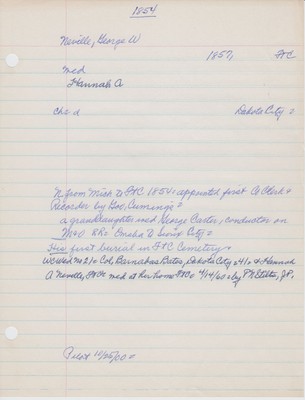 1854
Neville, George W
1857, StC
med
Hannah A
chr d Dakota City
N from Mich to StC 1854: appointed first Co Clerk &
Recorder by Gov. Cumings
a granddaughter med George Carter, conductor on
M&O RR. Omaha to Sioux City
His first burial in StC Cemetery
No 210 Col. Barnabas Bates, Dakota City 41 & Hannah
A Neville, med at her home StC 4/14/60 by J.P.
Pilot